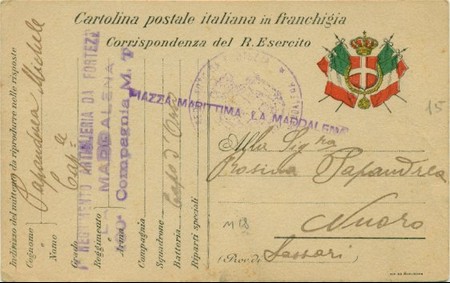 Cartolina postale italiana in franchigia
Corrispondenza del R. Esercito
Indirizzo del mittente da riprodurre nelle risposte
Cognome Papandrea Michele
Grado Cap.
Reggimento
Arma
Compagnia Capo d'Orso
Squadrone
Batteria
Riparti speciali
REGGIMENTO ARTIGLIERIA DA FORTEZZA
MADDALENA
Compagnia M. T
PIAZZA MARITTIMA LA MADDALENA
15
Alla Sig.ra
Rosina Papandrea
Nuoro
(Prov. di Sassari)